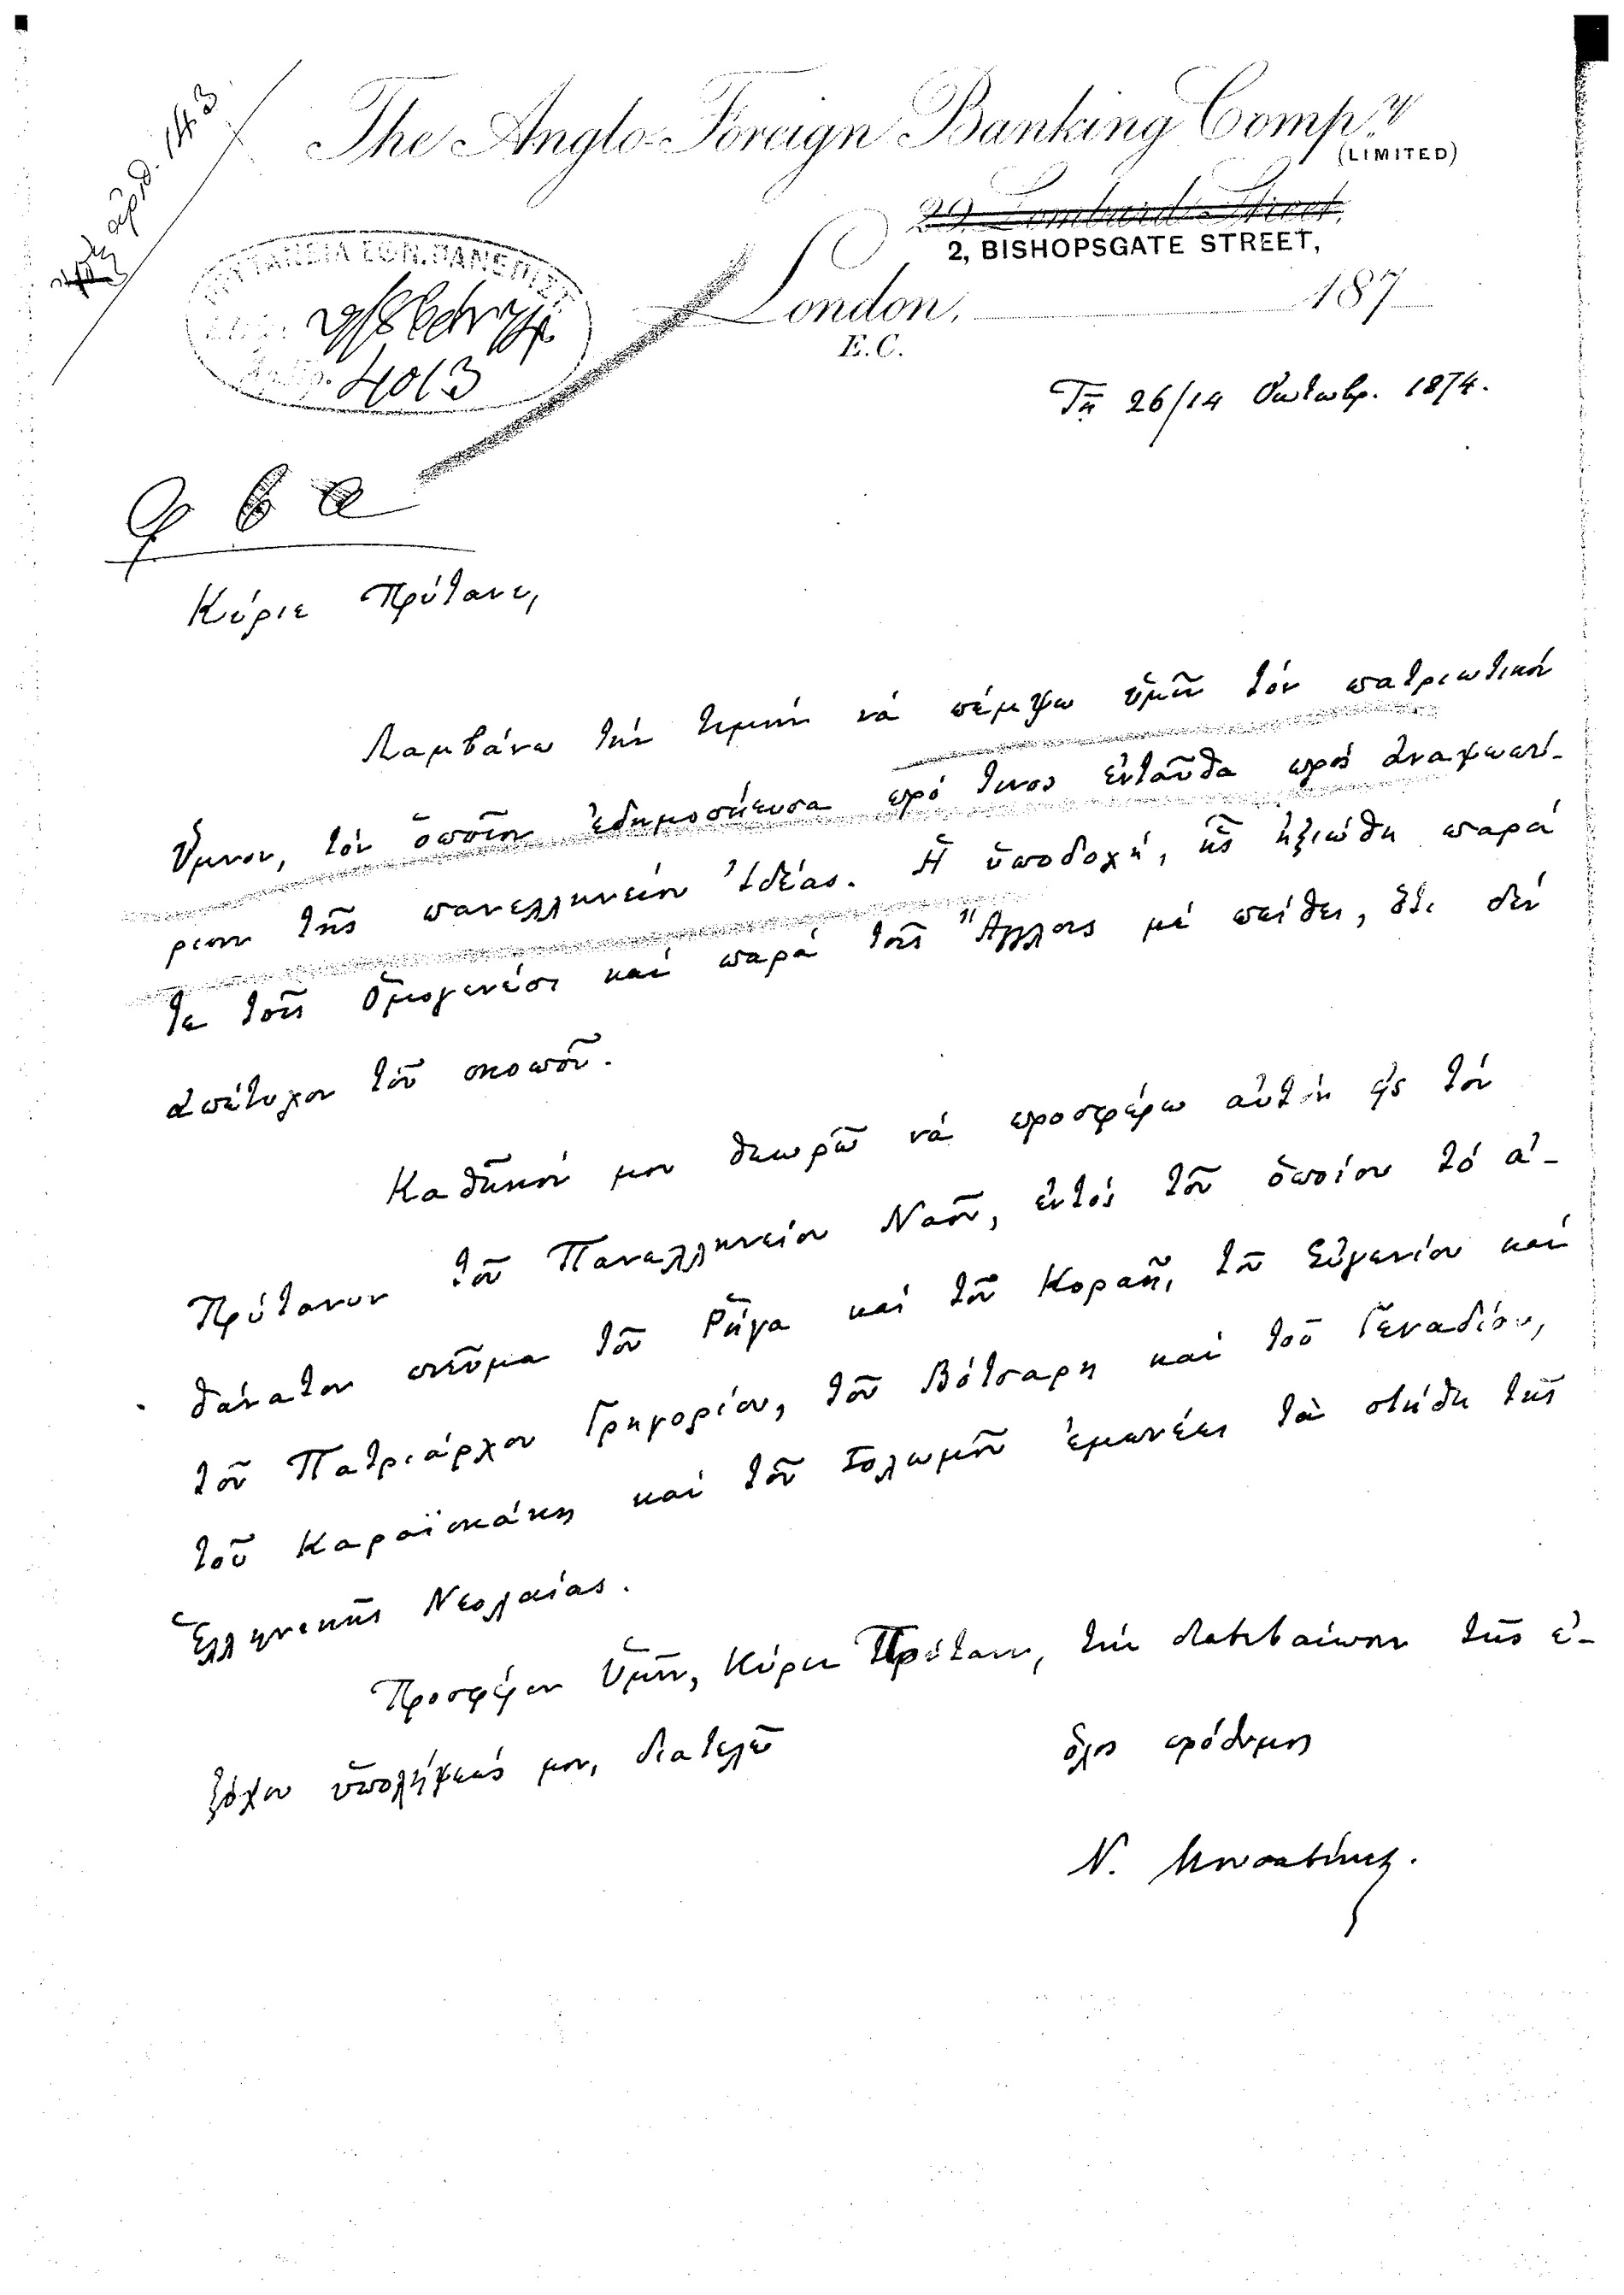 αριθ. 143
The Anglo-Foreign Banking Compy.
(LIMITED)
29. Lombard Street,
2, BISHOPSGATE STREET,
London, 187
E.C.
ΠΡΥΤΑΝΕΙΑ ΕΘΝ. ΠΑΝΕΠΙΣΤ.
4013
Τῇ 26/14 Ὀκτωβρ. 1874.
Κύριε Πρύτανι,
Λαμβάνω τὴν τιμὴν νὰ πέμψω ὑμῖν τὸν πατριωτικὸν
Ὕμνον, τὸν ὁποῖον ἐδημοσίευσα πρό τινος ἐνταῦθα πρὸς ἀναψωπύ-
ρισιν τῆς πανελληνείου Ἰδέας. Ἡ ὑποδοχή, ἧς ἠξιώθη παρά
τε τοῖς ὁμογενέσι καὶ παρὰ τοῖς Ἄγγλοις μὲ πείθει, ὅτι δὲν
ἀπέτυχον τοῦ σκοποῦ.
Καθῆκόν μου θεωρῶ νὰ προσφέρω αὐτὸν εἰς τὸν
Πρύτανιν τοῦ Πανελληνείου Ναοῦ, ἐντὸς τοῦ ὁποίου τὸ ἀ-
θάνατον πνεῦμα τοῦ Ῥήγα καὶ τοῦ Κοραῆ, τοῦ Εὐγενίου καὶ
τοῦ Πατριάρχου Γρηγορίου, τοῦ Βότσαρη καὶ τοῦ Γεναδίου,
τοῦ Καραϊσκάκη καὶ τοῦ Σολωμοῦ ἐμπνέει τὰ στήθη τῆς
Ἑλληνικῆς Νεολαίας.
Προσφέρων Ὑμῖν, Κύριε Πρύτανι, τὴν διαβεβαίωσιν τῆς ἐ-
ξόχου ὑπολήψεώς μου, διατελῶ
ὅλος πρόθυμος
Ν.